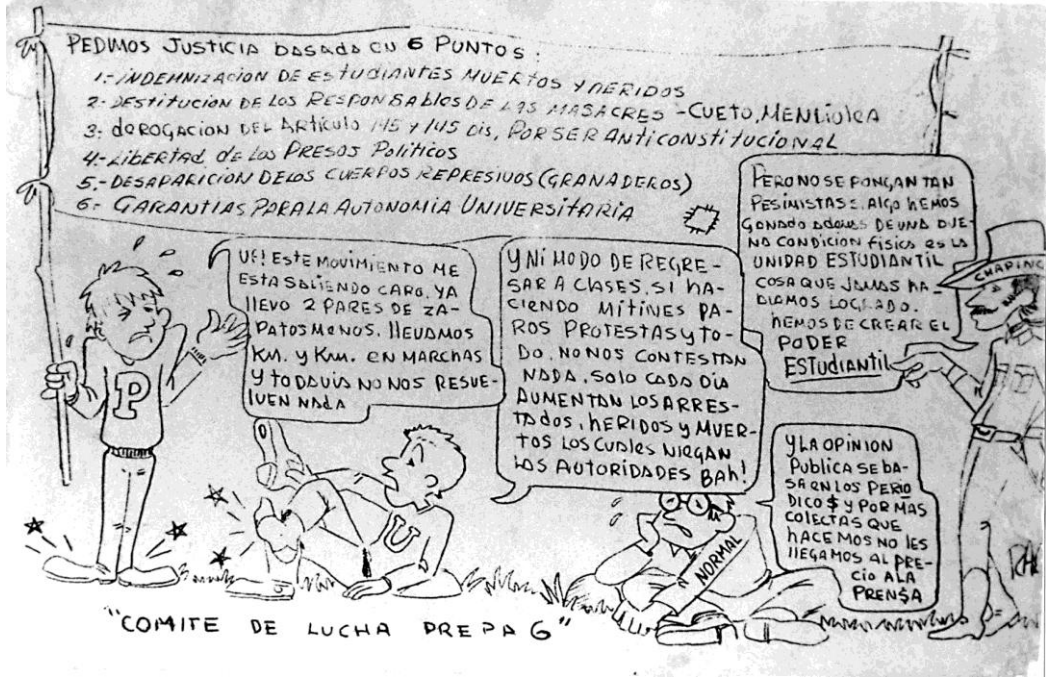 PEDIMOS JUSTICIA basada en 6 PUNTOS:
1.- INDEMNIZACION DE ESTUDIANTES MUERTOS Y HERIDOS
2- DESTITUCION DE LOS RESPONSABLES DE LAS MASACRES - CUETO, MENDIOLEA
3- dEROGACION DEL ARTICULO 145 Y 145 bis, POR SER ANTICONSTITUCIONAL
4.- LIBERTAD de Los PRESOS Políticos
5.- DESAPARICION DE LOS CUERPOS REPRESIVOS (GRANADEROS)
6- GARANTIAS PARA LA AUTONOMIA UNIVERSITARIA
UF! ESTE MOVIMIENTO ME
ESTA SALIENDO CARO, YA
LLEVO 2 PARES DE ZA-
PATOS MENOS. llEVAMOS
KM. Y KM. EN MARCHAS
Y TODAVIA NO NOS RESUE-
LVEN NADA
P
Y NI MODO DE REGRE-
SAR A CLASES, SI HA-
CIENDO MITINES PA-
ROS PROTESTAS Y TO-
DO. NO NOS CONTESTAN
NADA, SOLO CADA DIA
AUMENTAN LOS ARRES-
TADOS, HERIDOS Y MUER-
TOS LOS CUALES NIEGAN
LAS AUTORIDADES BAH!
U
PERO NO SE PONGAN TAN
PESIMISTAS: ALGO HEMOS
GANADO ADEMAS DE UNA BUE-
NA CONDICION física ES LA
UNIDAD ESTUDIANTIL
COSA QUE JAMAS HA-
BIAMOS LOGRADO.
HEMOS DE CREAR EL
PODER
ESTUDIANTIL
CHAPINGO
Y LA OPINION
PUBLICA SE BA-
SA EN LOS PERIO
DICO$ Y POR MAS
COLECTAS QUE
HACEMOS NO LES
LLEGAMOS AL PRE-
CIO A LA
PREN$A
NORMAL
"COMITE DE LUCHA PREPA 6"